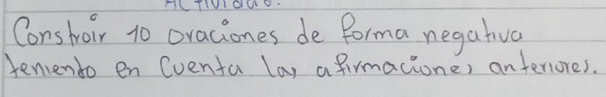 Actividad.
Constroir 10 oraciones de forma negativa
teniento en Cuenta las afirmaciones anteriores.